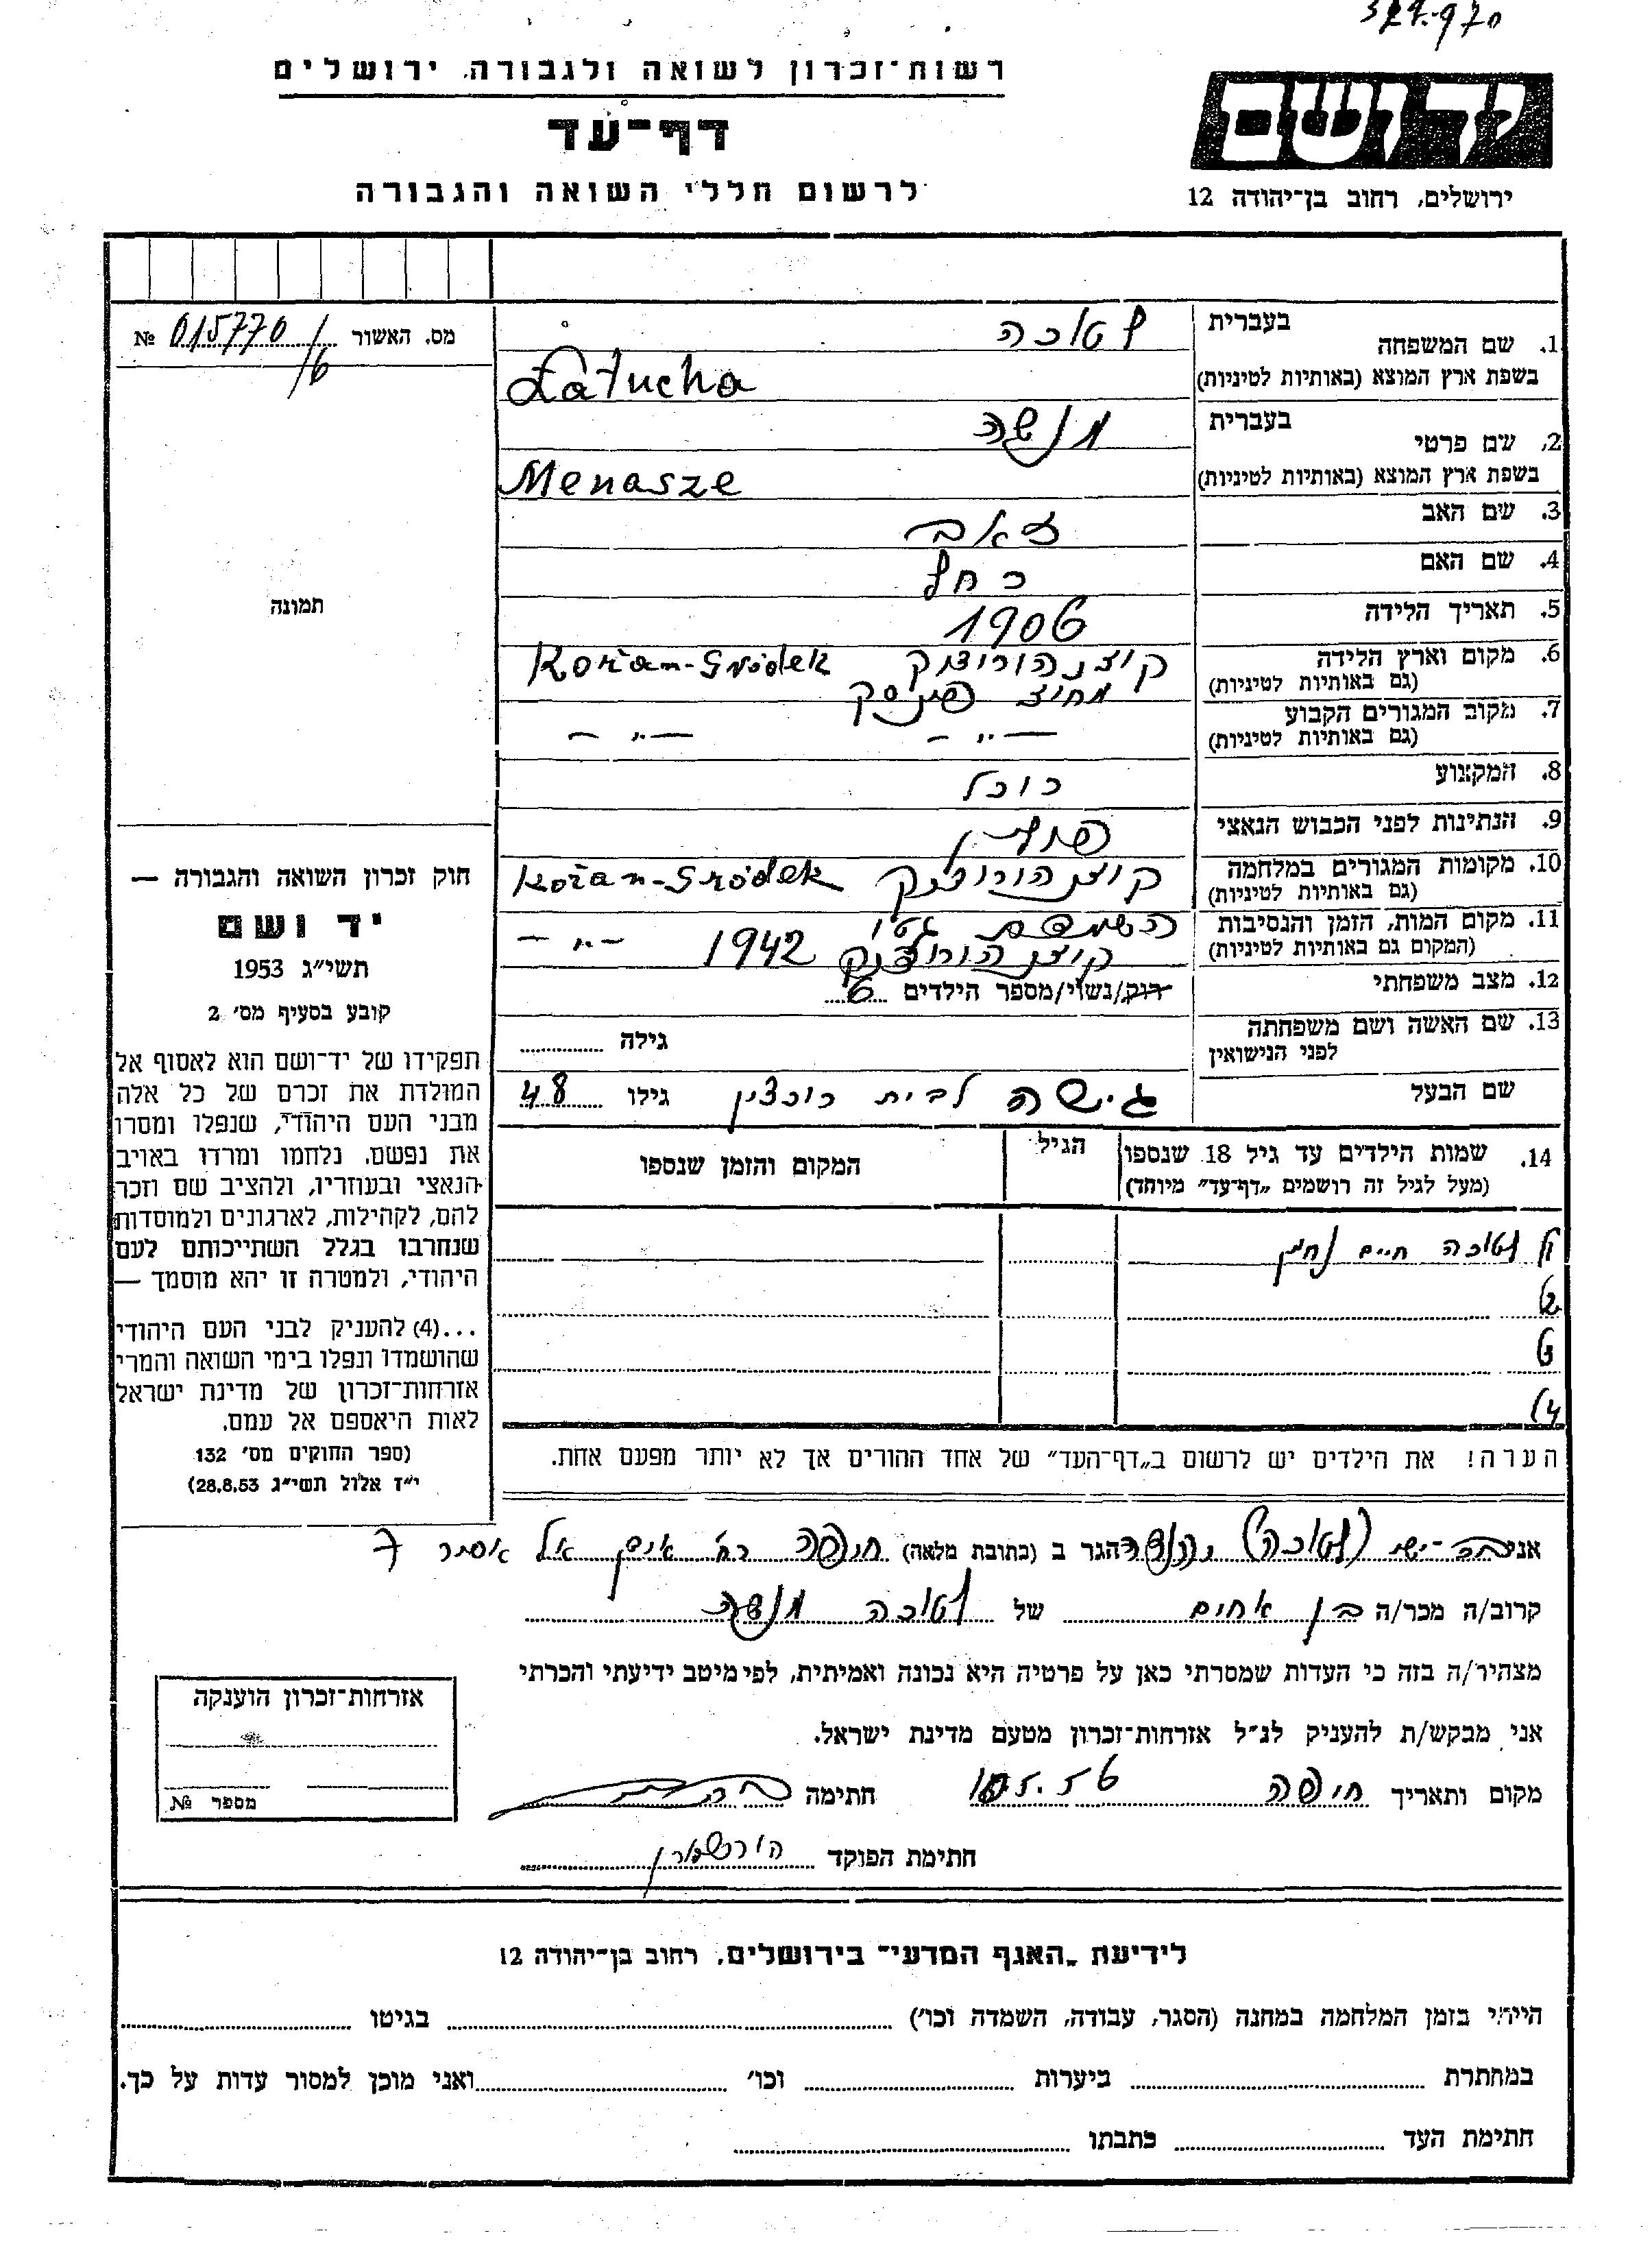 רשות־זכרון לשואה ולגבורה, ירושלים
דף־עד
לרשום חללי השואה והגבורה
יד ושם
ירושלים, רחוב בן־יהודה 12
מס. האשור 015770/16 №
תמונה
1. שם המשפחה
בעברית לטוכה
בשפת ארץ המוצא (באותיות לטיניות) Łatucha
2. שם פרטי
בעברית מנשה
בשפת ארץ המוצא (באותיות לטיניות) Menasze
3. שם האב זאב
4. שם האם רחל
5. תאריך הלידה 1906
6. מקום וארץ הלידה
(גם באותיות לטיניות) קוז'ן הורודוק Kožan-Gródek
מחוז פינסק
7. מקום המגורים הקבוע
(גם באותיות לטיניות) — " — — " —
8. המקצוע רוכל
9. הנתינות לפני הכבוש הנאצי פולין
10. מקומות המגורים במלחמה
(גם באותיות לטיניות) קוז'ן הורודוק Kožan-Gródek
11. מקום המות, הזמן והנסיבות
(המקום גם באותיות לטיניות) השמדת גטו
קוז'ן הורודוק 1942 — " —
12. מצב משפחתי רוק/נשוי/מספר הילדים 6
13. שם האשה ושם משפחתה
לפני הנישואין גילה
שם הבעל גישה לבית גילו 48
14. שמות הילדים עד גיל 18 שנספו
(מעל לגיל זה רושמים „דף־עד" מיוחד)
הגיל
המקום והזמן שנספו
1) לטוכה חיים נחמן
2)
3)
4)
הערה! את הילדים יש לרשום ב„דף־העד" של אחד ההורים אך לא יותר מפעם אחת.
חוק זכרון השואה והגבורה —
יד ושם
תשי"ג 1953
קובע בסעיף מס' 2
תפקידו של יד־ושם הוא לאסוף אל
המולדת את זכרם של כל אלה
מבני העם היהודי, שנפלו ומסרו
את נפשם, נלחמו ומרדו באויב
הנאצי ובעוזריו, ולהציב שם וזכר
להם, לקהילות, לארגונים ולמוסדות
שנחרבו בגלל השתייכותם לעם
היהודי, ולמטרה זו יהא מוסמך —
...(4) להעניק לבני העם היהודי
שהושמדו ונפלו בימי השואה והמרי
אזרחות־זכרון של מדינת ישראל
לאות היאספם אל עמם.
(ספר החוקים מס' 132
י"ז אלול תשי"ג 28.8.53)
אני (לטוכה) הגר ב (כתובת מלאה) חיפה רח' אל 7
קרוב/ה מכר/ה בן אחים של לטוכה מנשה
מצהיר/ה בזה כי העדות שמסרתי כאן על פרטיה היא נכונה ואמיתית, לפי מיטב ידיעתי והכרתי
אני מבקש/ת להעניק לנ"ל אזרחות־זכרון מטעם מדינת ישראל.
מקום ותאריך חיפה 10.5.56 חתימה
חתימת הפוקד
אזרחות־זכרון הוענקה
מספר №
לידיעת „האגף המדעי" בירושלים, רחוב בן־יהודה 12
הייתי בזמן המלחמה במחנה (הסגר, עבודה, השמדה וכו') בגיטו
במחתרת ביערות וכו' ואני מוכן למסור עדות על כך.
חתימת העד כתבתו